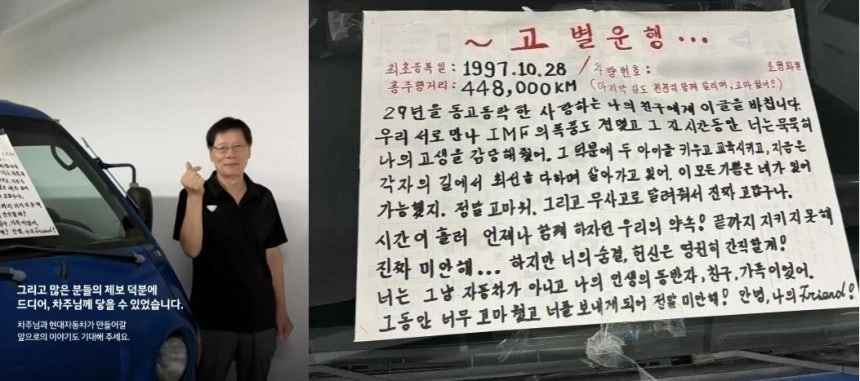 그리고 많은 분들의 제보 덕분에
드디어, 차주님께 닿을 수 있었습니다.
차주님과 현대자동차가 만들어갈
앞으로의 이야기도 기대해 주세요.
~ 고 별 운 행 ...
최초등록일 : 1997.10.28 / 차량번호 :
총주행거리 : 448,000KM (마지막 길도 천천히 함께 달리며, 고마웠어!)
29년을 동고동락한 사랑하는 나의 친구에게 이 글을 바칩니다.
우리 서로 만나 IMF의 폭풍도 견뎠고 그 긴 시간동안 너는 묵묵히
나의 고생을 감당해줬어. 그 덕분에 두 아이를 키우고 교육시키고, 지금은
각자의 길에서 최선을 다하며 살아가고 있어. 이 모든 기쁨은 네가 있어
가능했지. 정말 고마워. 그리고 무사고로 달려줘서 진짜 고맙구나.
시간이 흘러 언제나 함께 하자던 우리의 약속! 끝까지 지키지 못해
진짜 미안해... 하지만 너의 숨결, 헌신은 영원히 간직할게!
너는 그냥 자동차가 아니고 나의 인생의 동반자, 친구, 가족이었어.
그동안 너무 고마웠고 너를 보내게 되어 정말 미안해! 안녕, 나의 Friend!